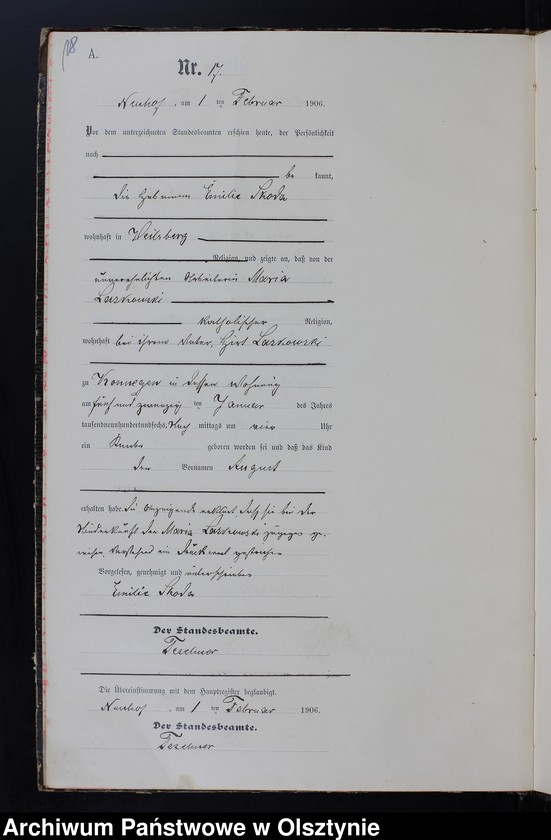 18
A.
Nr. 17.
Neuhof, am 1 ten Februar 1906.
Vor dem unterzeichneten Standesbeamten erschien heute, der Persönlichkeit
nach
be kannt,
die Hebamme Emilie Skoda
wohnhaft in Heilsberg
Religion, und zeigte an, daß von der
unverehelichten Arbeiterin Maria
Laskowski
katholischer Religion,
wohnhaft bei ihrem Vater, Hirt Laskowski
zu Konnegen in dessen Wohnung
am fünf und zwanzig ten Januar des Jahres
tausendneunhundertundsechs, Nach mittags um vier Uhr
ein Knabe geboren worden sei und daß das Kind
den Vornamen August
erhalten habe. Die Anzeigende erklärt, daß sie bei der
Niederkunft der Maria Laskowski zugegen ge-
wesen. Vorstehend ein Druckwort gestrichen
Vorgelesen, genehmigt und unterschrieben
Emilie Skoda
Der Standesbeamte.
Teschner
Die Übereinstimmung mit dem Hauptregister beglaubigt.
Neuhof, am 1 ten Februar 1906.
Der Standesbeamte.
Teschner
Archiwum Państwowe w Olsztynie